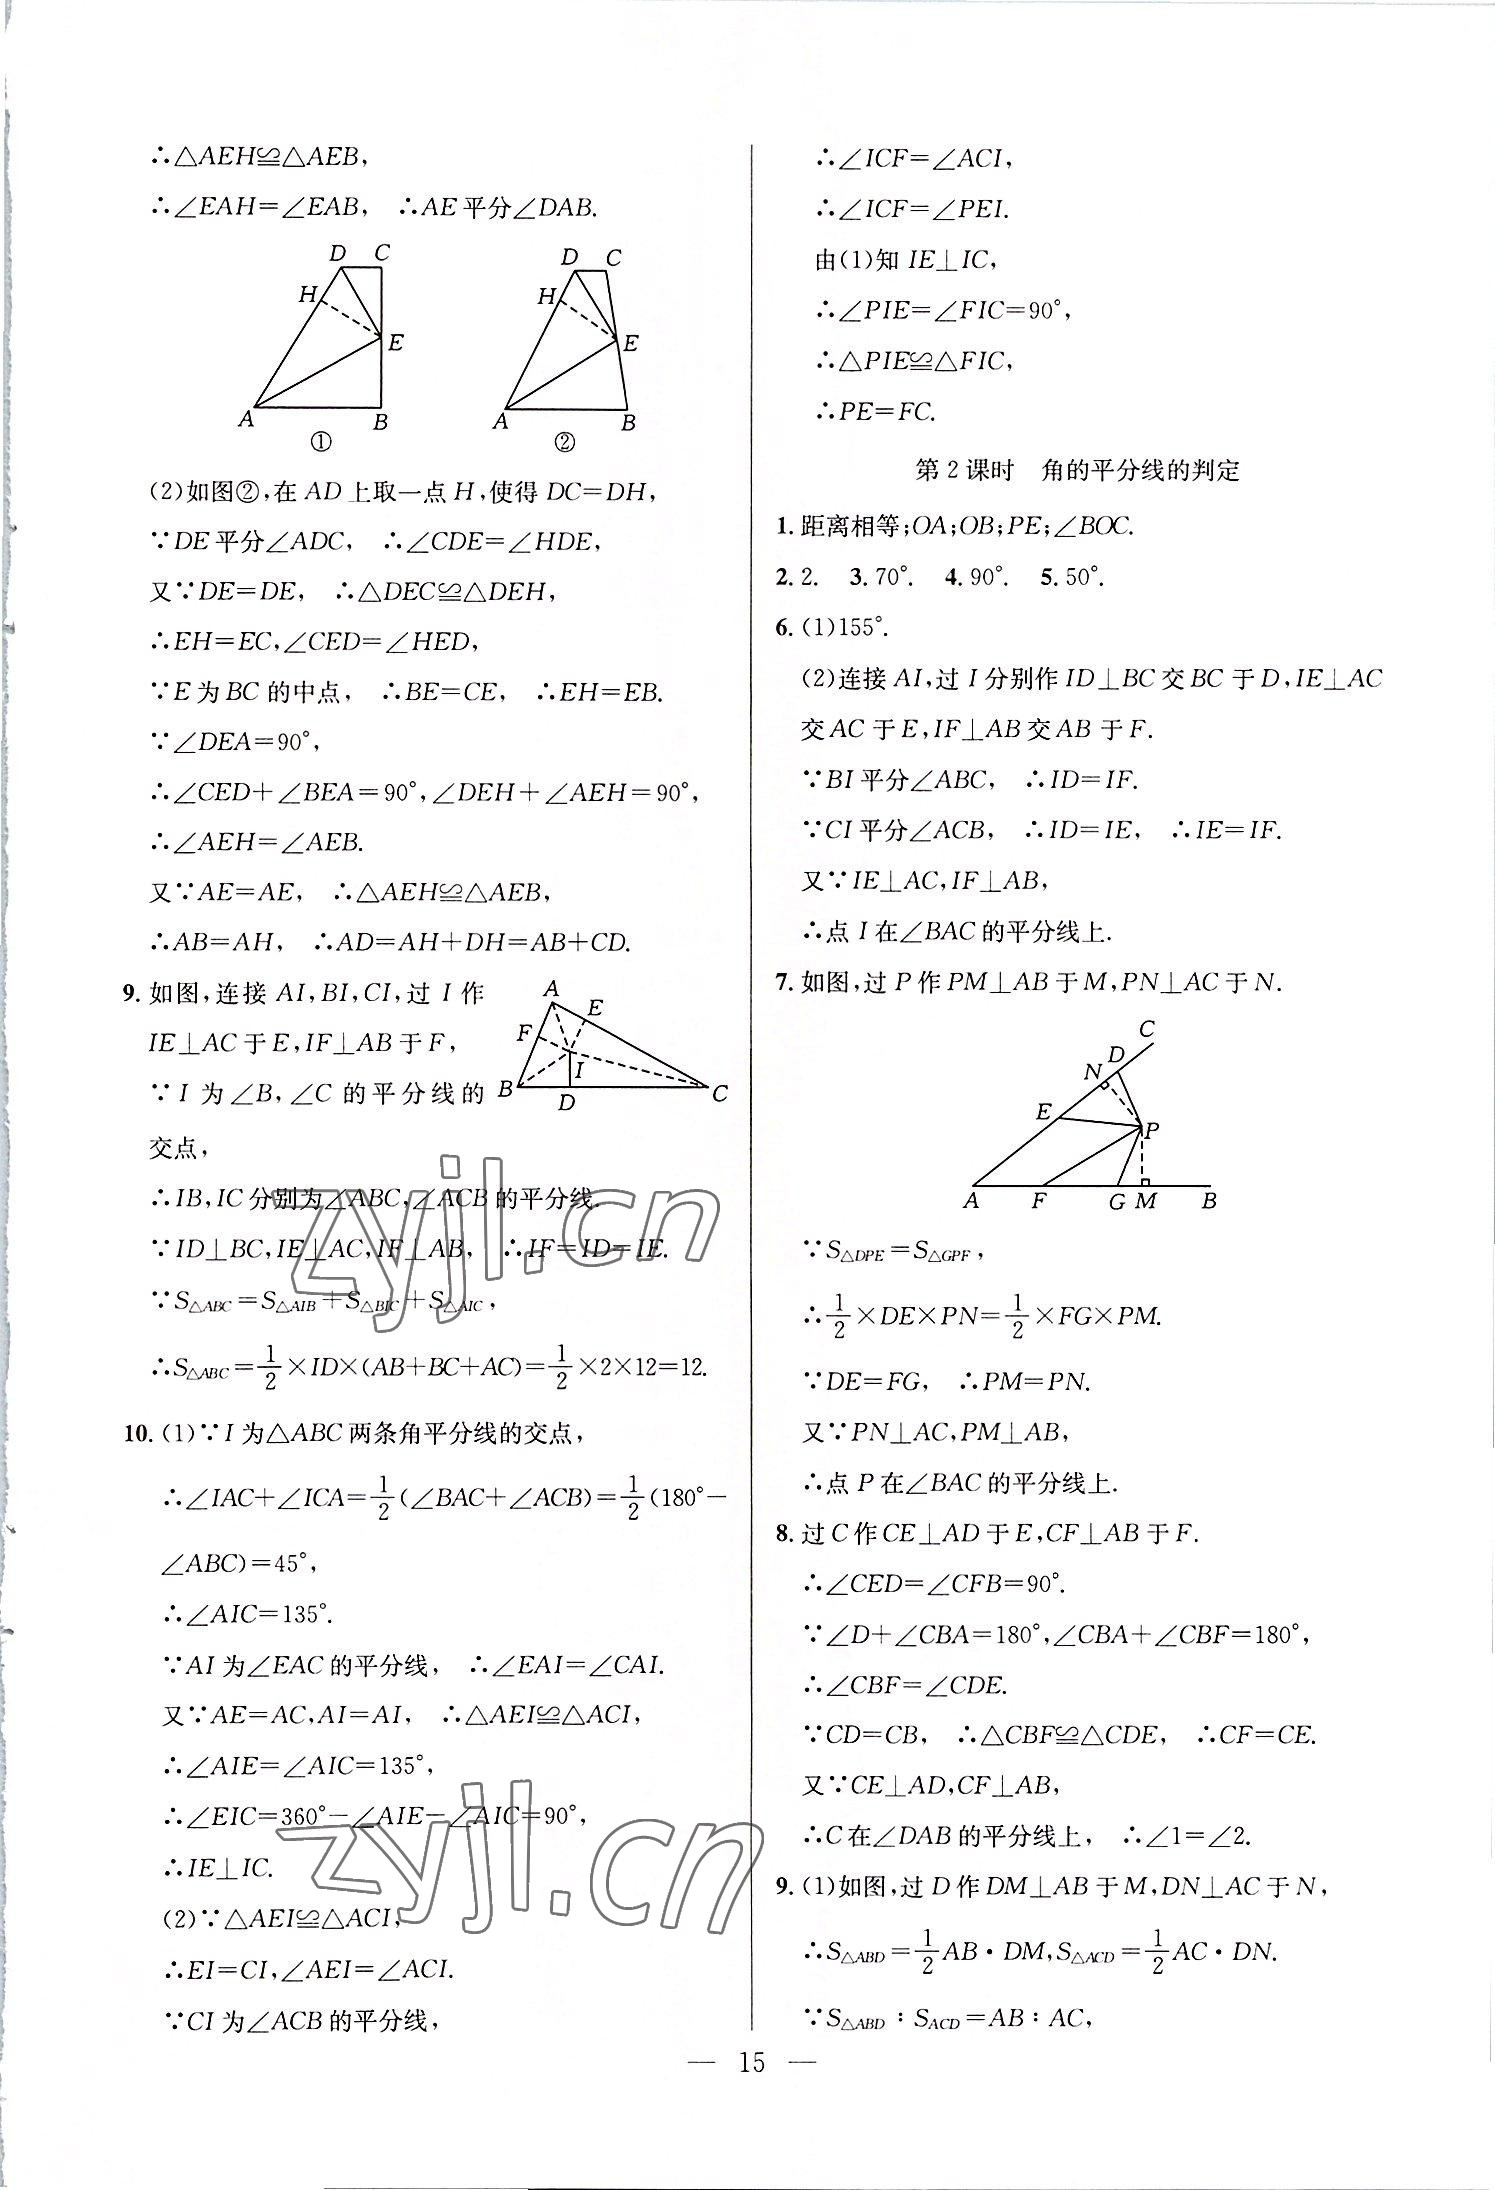 ∴△AEH≌△AEB,
∴∠EAH=∠EAB, ∴AE平分∠DAB.
D C
H
E
A B
①
D C
H
E
A B
②
(2)如图②,在AD上取一点H,使得DC=DH,
∵DE平分∠ADC, ∴∠CDE=∠HDE,
又∵DE=DE, ∴△DEC≌△DEH,
∴EH=EC,∠CED=∠HED,
∵E为BC的中点, ∴BE=CE, ∴EH=EB.
∵∠DEA=90°,
∴∠CED+∠BEA=90°,∠DEH+∠AEH=90°,
∴∠AEH=∠AEB.
又∵AE=AE, ∴△AEH≌△AEB,
∴AB=AH, ∴AD=AH+DH=AB+CD.
9.如图,连接AI,BI,CI,过I作
IE⊥AC于E,IF⊥AB于F,
∵I为∠B,∠C的平分线的
交点,
A
E
F
I
B D C
∴IB,IC分别为∠ABC,∠ACB的平分线.
∵ID⊥BC,IE⊥AC,IF⊥AB, ∴IF=ID=IE.
∵S△ABC=S△AIB+S△BIC+S△AIC,
∴S△ABC=1/2×ID×(AB+BC+AC)=1/2×2×12=12.
10.(1)∵I为△ABC两条角平分线的交点,
∴∠IAC+∠ICA=1/2(∠BAC+∠ACB)=1/2(180°-
∠ABC)=45°,
∴∠AIC=135°.
∵AI为∠EAC的平分线, ∴∠EAI=∠CAI.
又∵AE=AC,AI=AI, ∴△AEI≌△ACI,
∴∠AIE=∠AIC=135°,
∴∠EIC=360°-∠AIE-∠AIC=90°,
∴IE⊥IC.
(2)∵△AEI≌△ACI,
∴EI=CI,∠AEI=∠ACI.
∵CI为∠ACB的平分线,
∴∠ICF=∠ACI,
∴∠ICF=∠PEI.
由(1)知IE⊥IC,
∴∠PIE=∠FIC=90°,
∴△PIE≌△FIC,
∴PE=FC.
第2课时 角的平分线的判定
1.距离相等;OA;OB;PE;∠BOC.
2.2. 3.70°. 4.90°. 5.50°.
6.(1)155°.
(2)连接AI,过I分别作ID⊥BC交BC于D,IE⊥AC
交AC于E,IF⊥AB交AB于F.
∵BI平分∠ABC, ∴ID=IF.
∵CI平分∠ACB, ∴ID=IE, ∴IE=IF.
又∵IE⊥AC,IF⊥AB,
∴点I在∠BAC的平分线上.
7.如图,过P作PM⊥AB于M,PN⊥AC于N.
C
D
N
E
P
A F G M B
∵S△DPE=S△GPF,
∴1/2×DE×PN=1/2×FG×PM.
∵DE=FG, ∴PM=PN.
又∵PN⊥AC,PM⊥AB,
∴点P在∠BAC的平分线上.
8.过C作CE⊥AD于E,CF⊥AB于F.
∴∠CED=∠CFB=90°.
∵∠D+∠CBA=180°,∠CBA+∠CBF=180°,
∴∠CBF=∠CDE.
∵CD=CB, ∴△CBF≌△CDE, ∴CF=CE.
又∵CE⊥AD,CF⊥AB,
∴C在∠DAB的平分线上, ∴∠1=∠2.
9.(1)如图,过D作DM⊥AB于M,DN⊥AC于N,
∴S△ABD=1/2AB·DM,S△ACD=1/2AC·DN.
∵S△ABD:SACD=AB:AC,
— 15 —
zyjl.cn
zyjl.cn